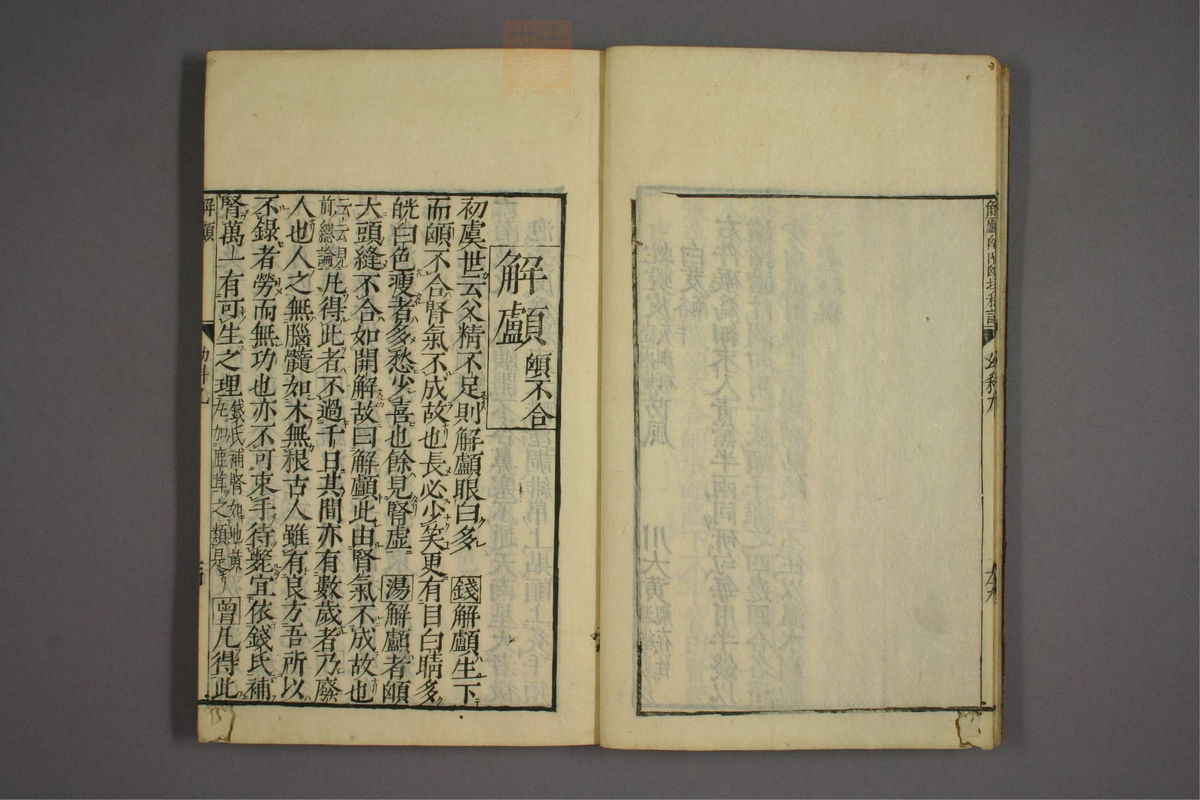 解顱 顖不合
初虞世云父精不足則解顱眼白多 錢解顱生下
而顖不合腎氣不成故也長必少笑更有目白睛多
㿠白色瘦者多愁少喜也餘見腎虛 湯解顱者顖
大頭縫不合如開解故曰解顱此由腎氣不成故也
云云見前總論凡得此者不過千日其間亦有數歲者乃廢
人也人之無腦髓如木無根古人雖有良方吾所以
不錄者勞而無功也亦不可束手待斃宜依錢氏補
腎萬一有可生之理錢氏補腎如地黃丸加鹿茸之類是 曾凡得此
解顱
幼科九